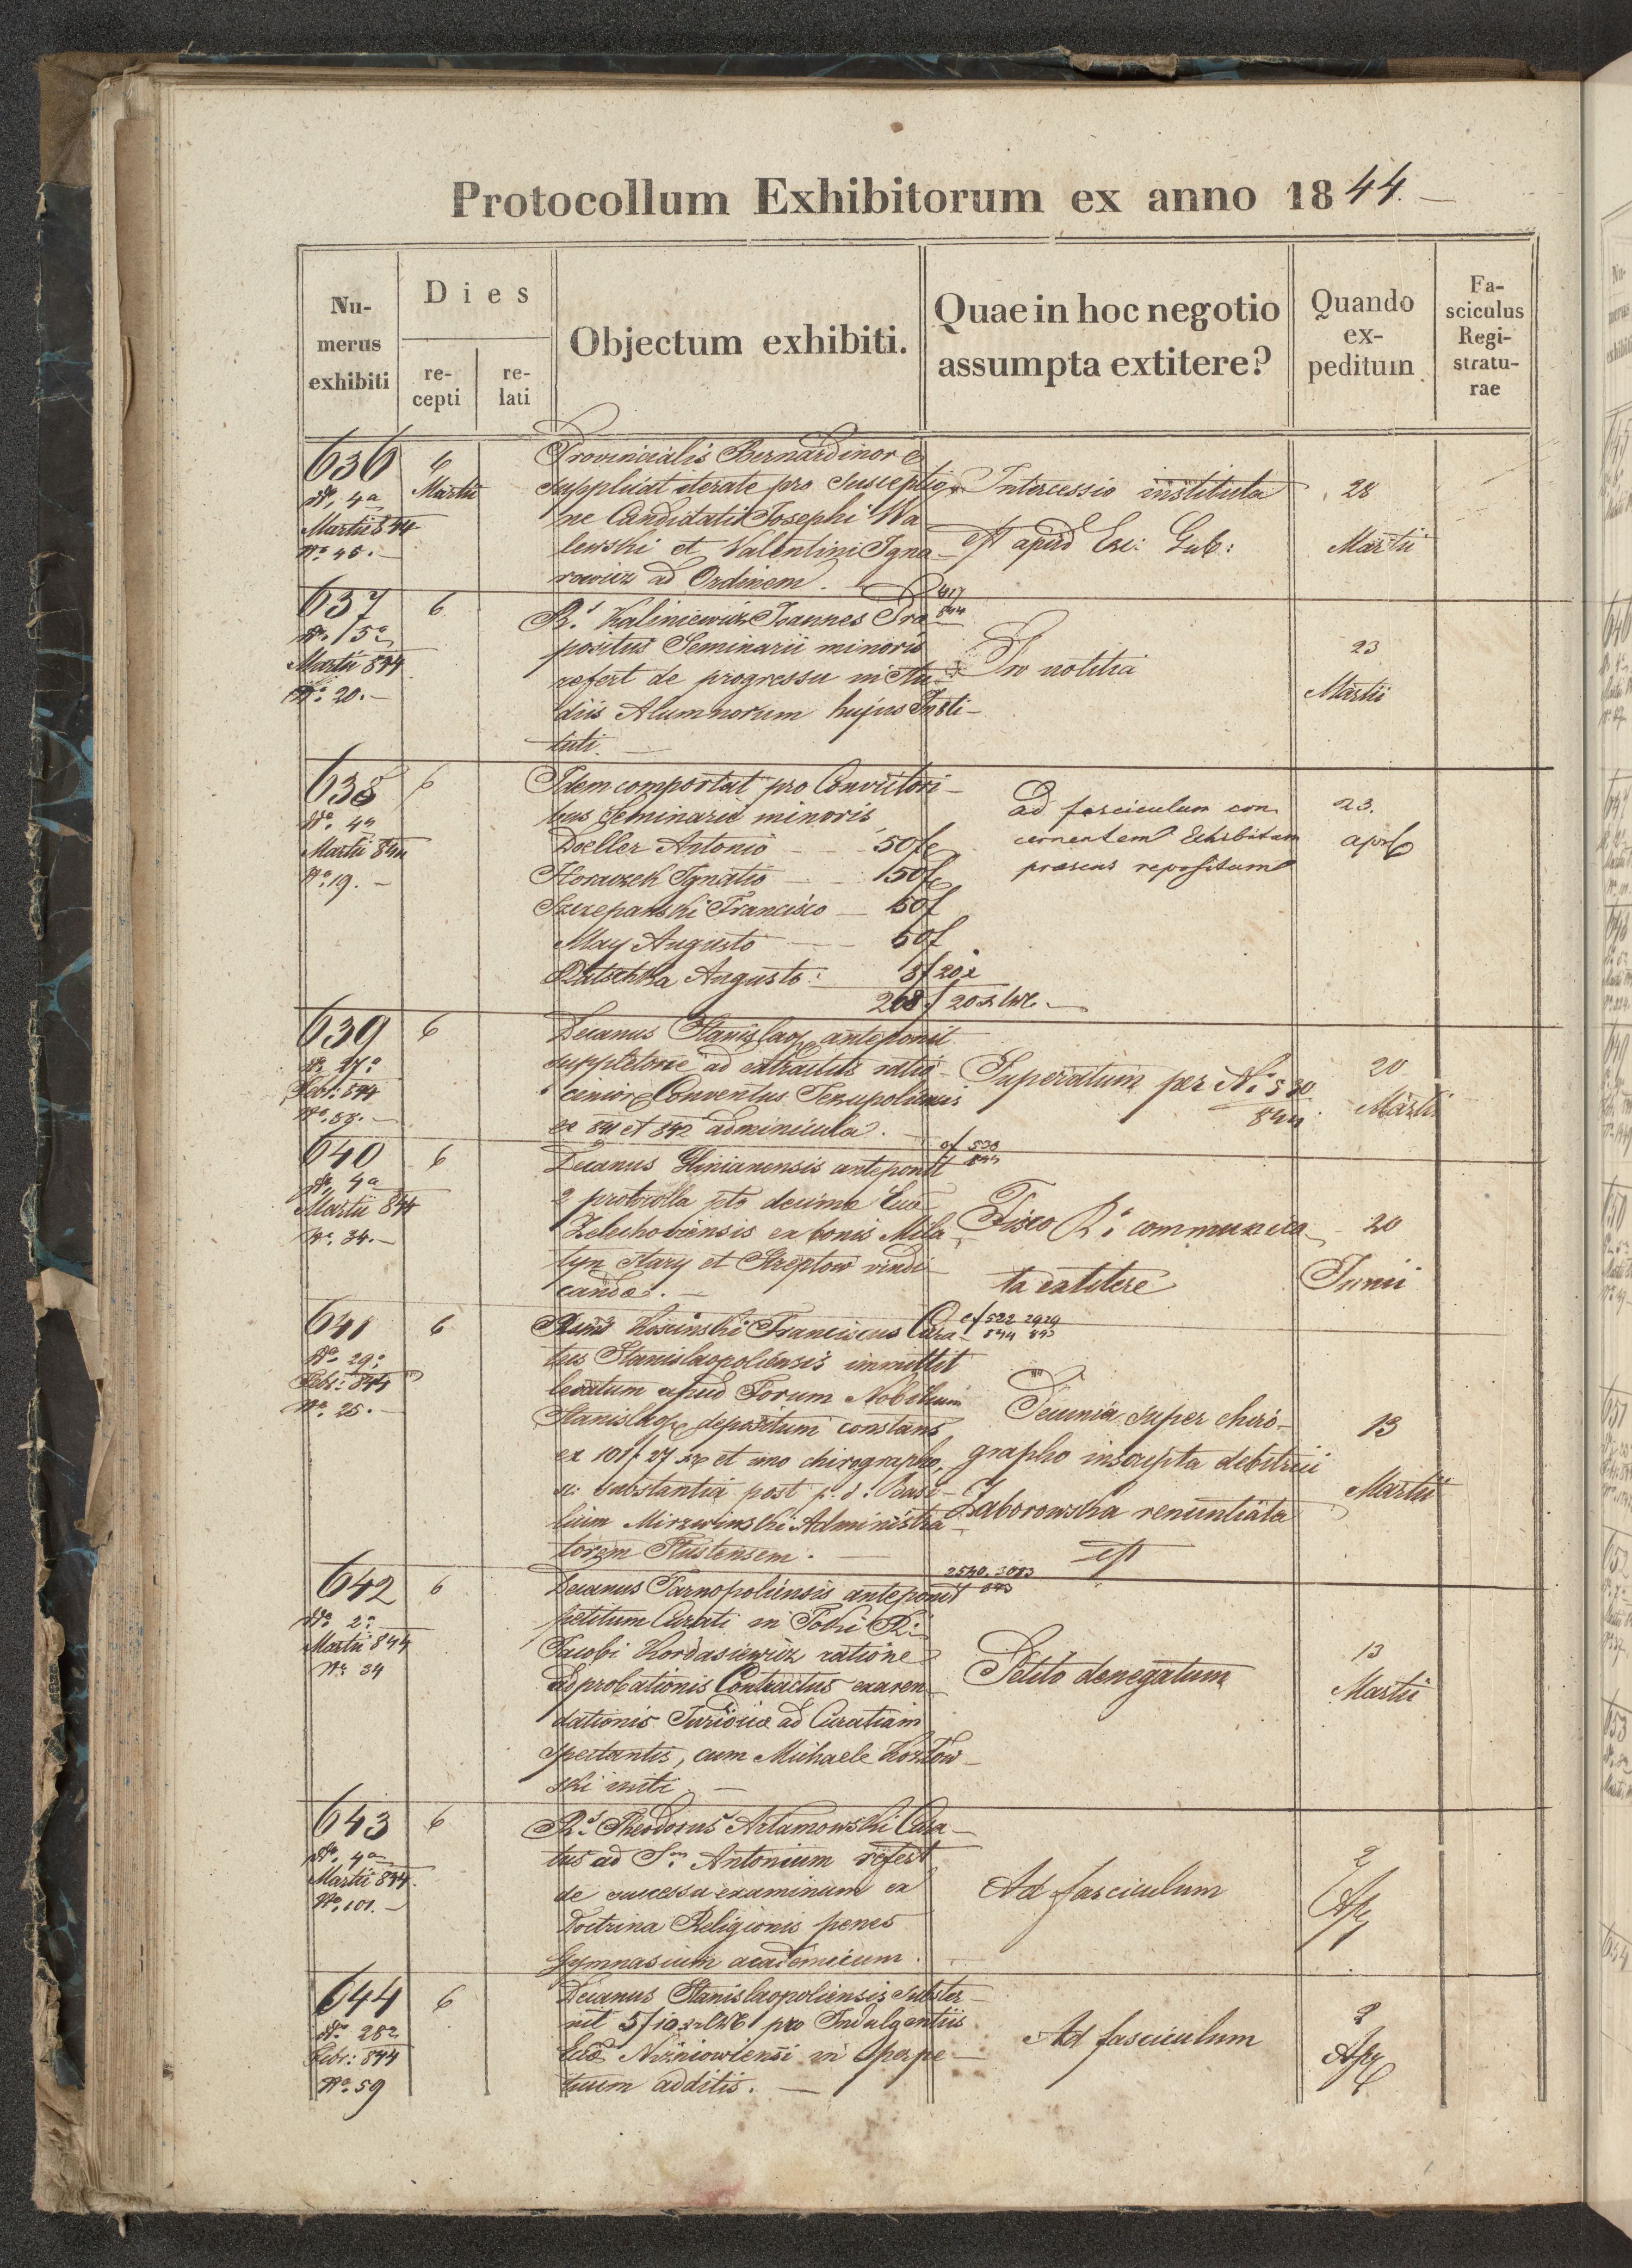 Protocollum Exhibitorum ex anno 1844.
Nu-
merus
exhibiti
Dies
re-
cepti
re-
lati
Objectum exhibiti.
Quae in hoc negotio
assumpta extitere?
Quando
ex-
peditum
Fa-
sciculus
Regi-
stratu-
rae
636
6
Martii
Do 4a
Martii 844
No 45.
Provincialis Bernardinor
supplicat iterate pro susceptio-
ne Candidati Josephi Wa-
lewski et Valentini Igna-
rowicz ad Ordinem.
Intercessio instituta
est apud Exc: Gub:
28
Martii
637
6
Do 5a
Martii 844
No. 20.
417
844
Rs. Kaliniewicz Joannes Pra-
positus Seminarii minoris
refert de progressu in stu-
diis Alumnorum hujus Insti-
tuti.
Pro notitia
23
Martii
638
6
Do 4a
Martii 844
No. 19.
Idem comportat pro Convictori-
bus Seminarii minoris
Doeller Antonio 50f
Horaczek Ignatio 50f
Szczepanski Francisco 50f
May Augusto 50f
Augusto: 20x
268f 20x
ad fasciculum con
cernentem Exhibitum
praesens repositum
23.
april
639
6
Do 27a
Febr: 844
No. 88.
Decanus Stanislaop anteponit
suppletorie ad extractus ratio-
cinior Conventus Tezupoliensis
ex 841 et 842 adminicula.
Superatum per No 530
844
20
Martii
640
6
Do 4a
Martii 844
No. 34.
cf 520
844
Decanus Glinianensis anteponit
2 protocolla pto decima Ecc
Zelechoviensis ex bonis Mila-
tyn stary et Streptow vindi-
canda.
Fisco R. communica-
ta extitere
20
Junii
641
6
Do 29a
Febr: 844
No. 25.
cf 522 2929
844 843
Kosinski Franciscus Cura-
tus Stanislaopoliensis immittit
levatum apud Forum Nobilium
Stanislaop depositum constans
ex 101f 27 xr et uno chirographo,
e: substantia post p: d: Basi-
lium Mirzwinski Administra-
torem Tlustensem.
Pecunia super chiro-
grapho inscripta debitrici
Zaborowska renuntiata
est
13
Martii
642
6
Do 2a
Martii 844
No. 34
2540. 3083
843
Decanus Tarnopoliensis anteponit
petitum Curati in Toki R.
Jacobi Kordasiewicz ratione
Adprobationis Contractus exaren-
dationis ad Curatiam
spectantis, cum Michaele Kozlow-
ski initi.
Petito denegatum
13
Martii
643
6
Do. 4a
Martii 844.
No. 101.
Rs. Theodorus Artamowski Cura-
tus ad S. Antonium refert
de successu examinum ex
Doctrina Religionis penes
Gymnasium academicum.
Ad fasciculum
2
Apr
644
6
Do 28a
Febr: 844
No. 59
Decanus Stanislaopoliensis subster-
nit 5f 10 xr pro Indulgentiis
Ecc Nizniowiensi in perpe-
tuum additis.
Ad fasciculum
2
Apr